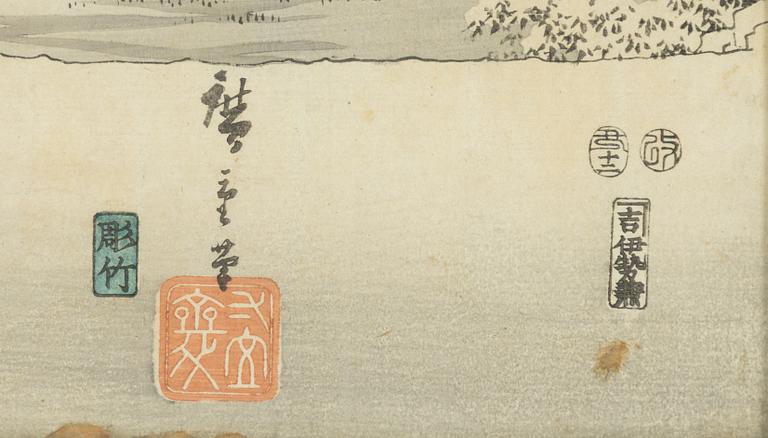 改
十二
吉伊勢兼
廣重筆
彫竹